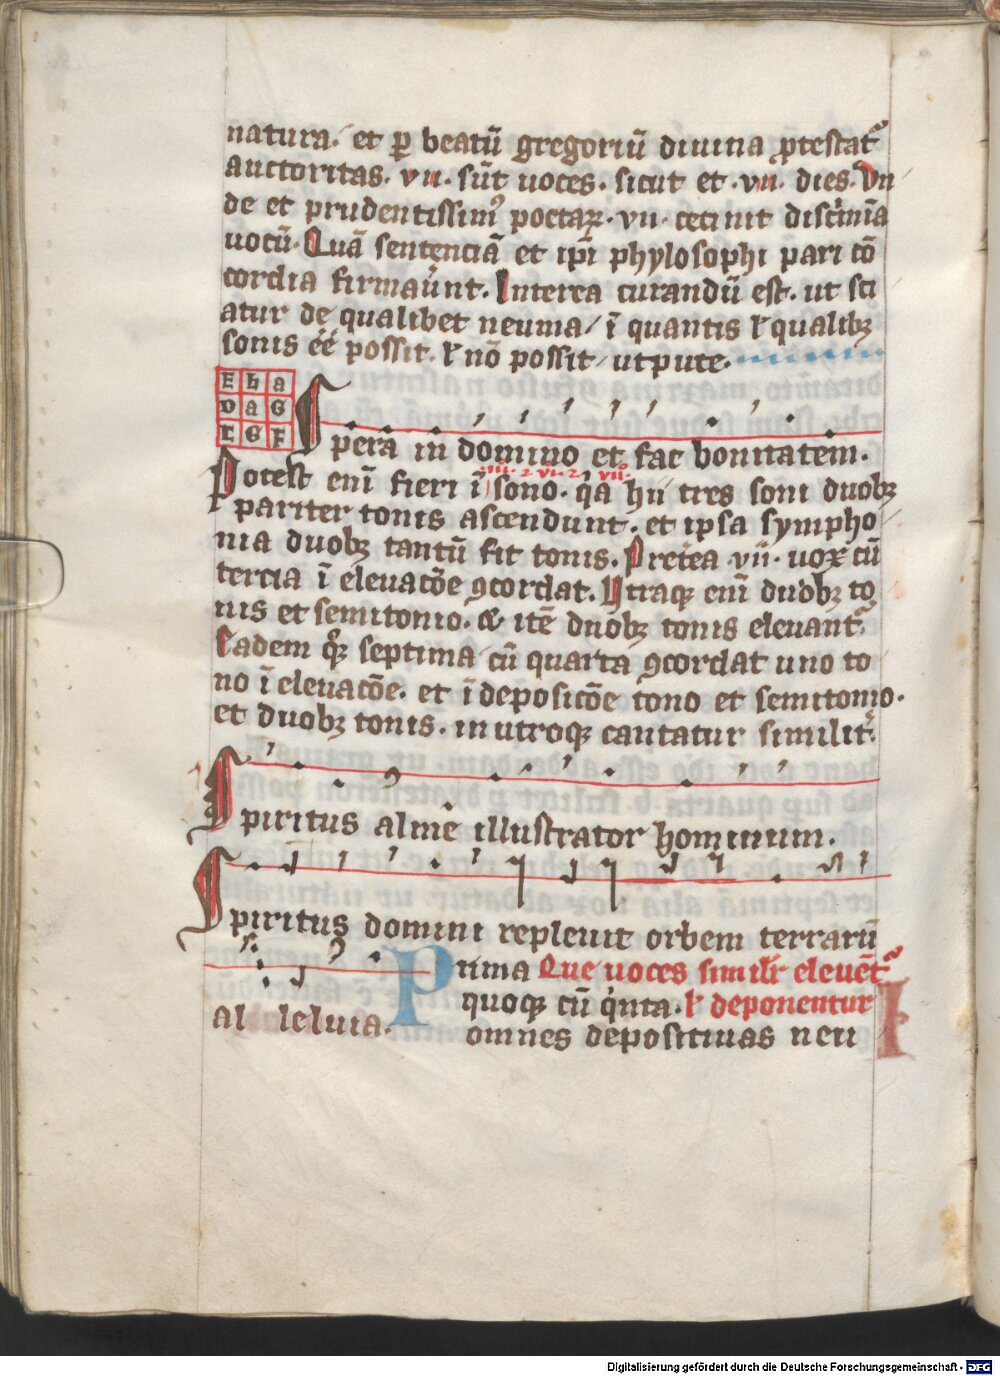 natura. et ꝑ beatū gregoriū diuina ꝓtestat᷑
auctoritas. vii. sūt uoces. sicut et. vii. dies. Vn
de et prudentissim᷒ poetaꝝ. vii. cecinit discͥmīa
uocū. Quā sentenciā et ip̄i phylosophi pari cō
cordia firmaūnt. Interea curandū est. ut sci
atur de qualibet neuma / ī quantis ł qualibꝫ
sonis éé possit. ł nō possit / utpute.
E h a
D a G
C G F
Spera in domino et fac bonitatem.
Potest enī fieri ī sono. qͥa hii tres soni duobꝫ
iiii. 2 vi. 2 vii.
pariter tonis ascendunt. et ipsa sympho
nia duobꝫ tantū fit tonis. Pretea .vii. uox cū
tercia ī eleuacōe ꝯcordat. Utraqꝫ enī duobꝫ to
nis et semitonio. & itē duobꝫ tonis eleuant᷑.
Eadem qͦꝫ septima cū quarta ꝯcordat uno to
no ī eleuacōe. et ī deposicōe tono et semitonio.
et duobꝫ tonis. in utroqꝫ cantatur similit̾.
Spiritus alme illustrator hominum.
Spiritus domini repleuit orbem terrarū
al leluia.
Prima Que uoces similit̾ eleuēt᷑
quoqꝫ cū qͥnta. ł deponentur
omnes depositiuas neu
I
Digitalisierung gefördert durch die Deutsche Forschungsgemeinschaft - DFG